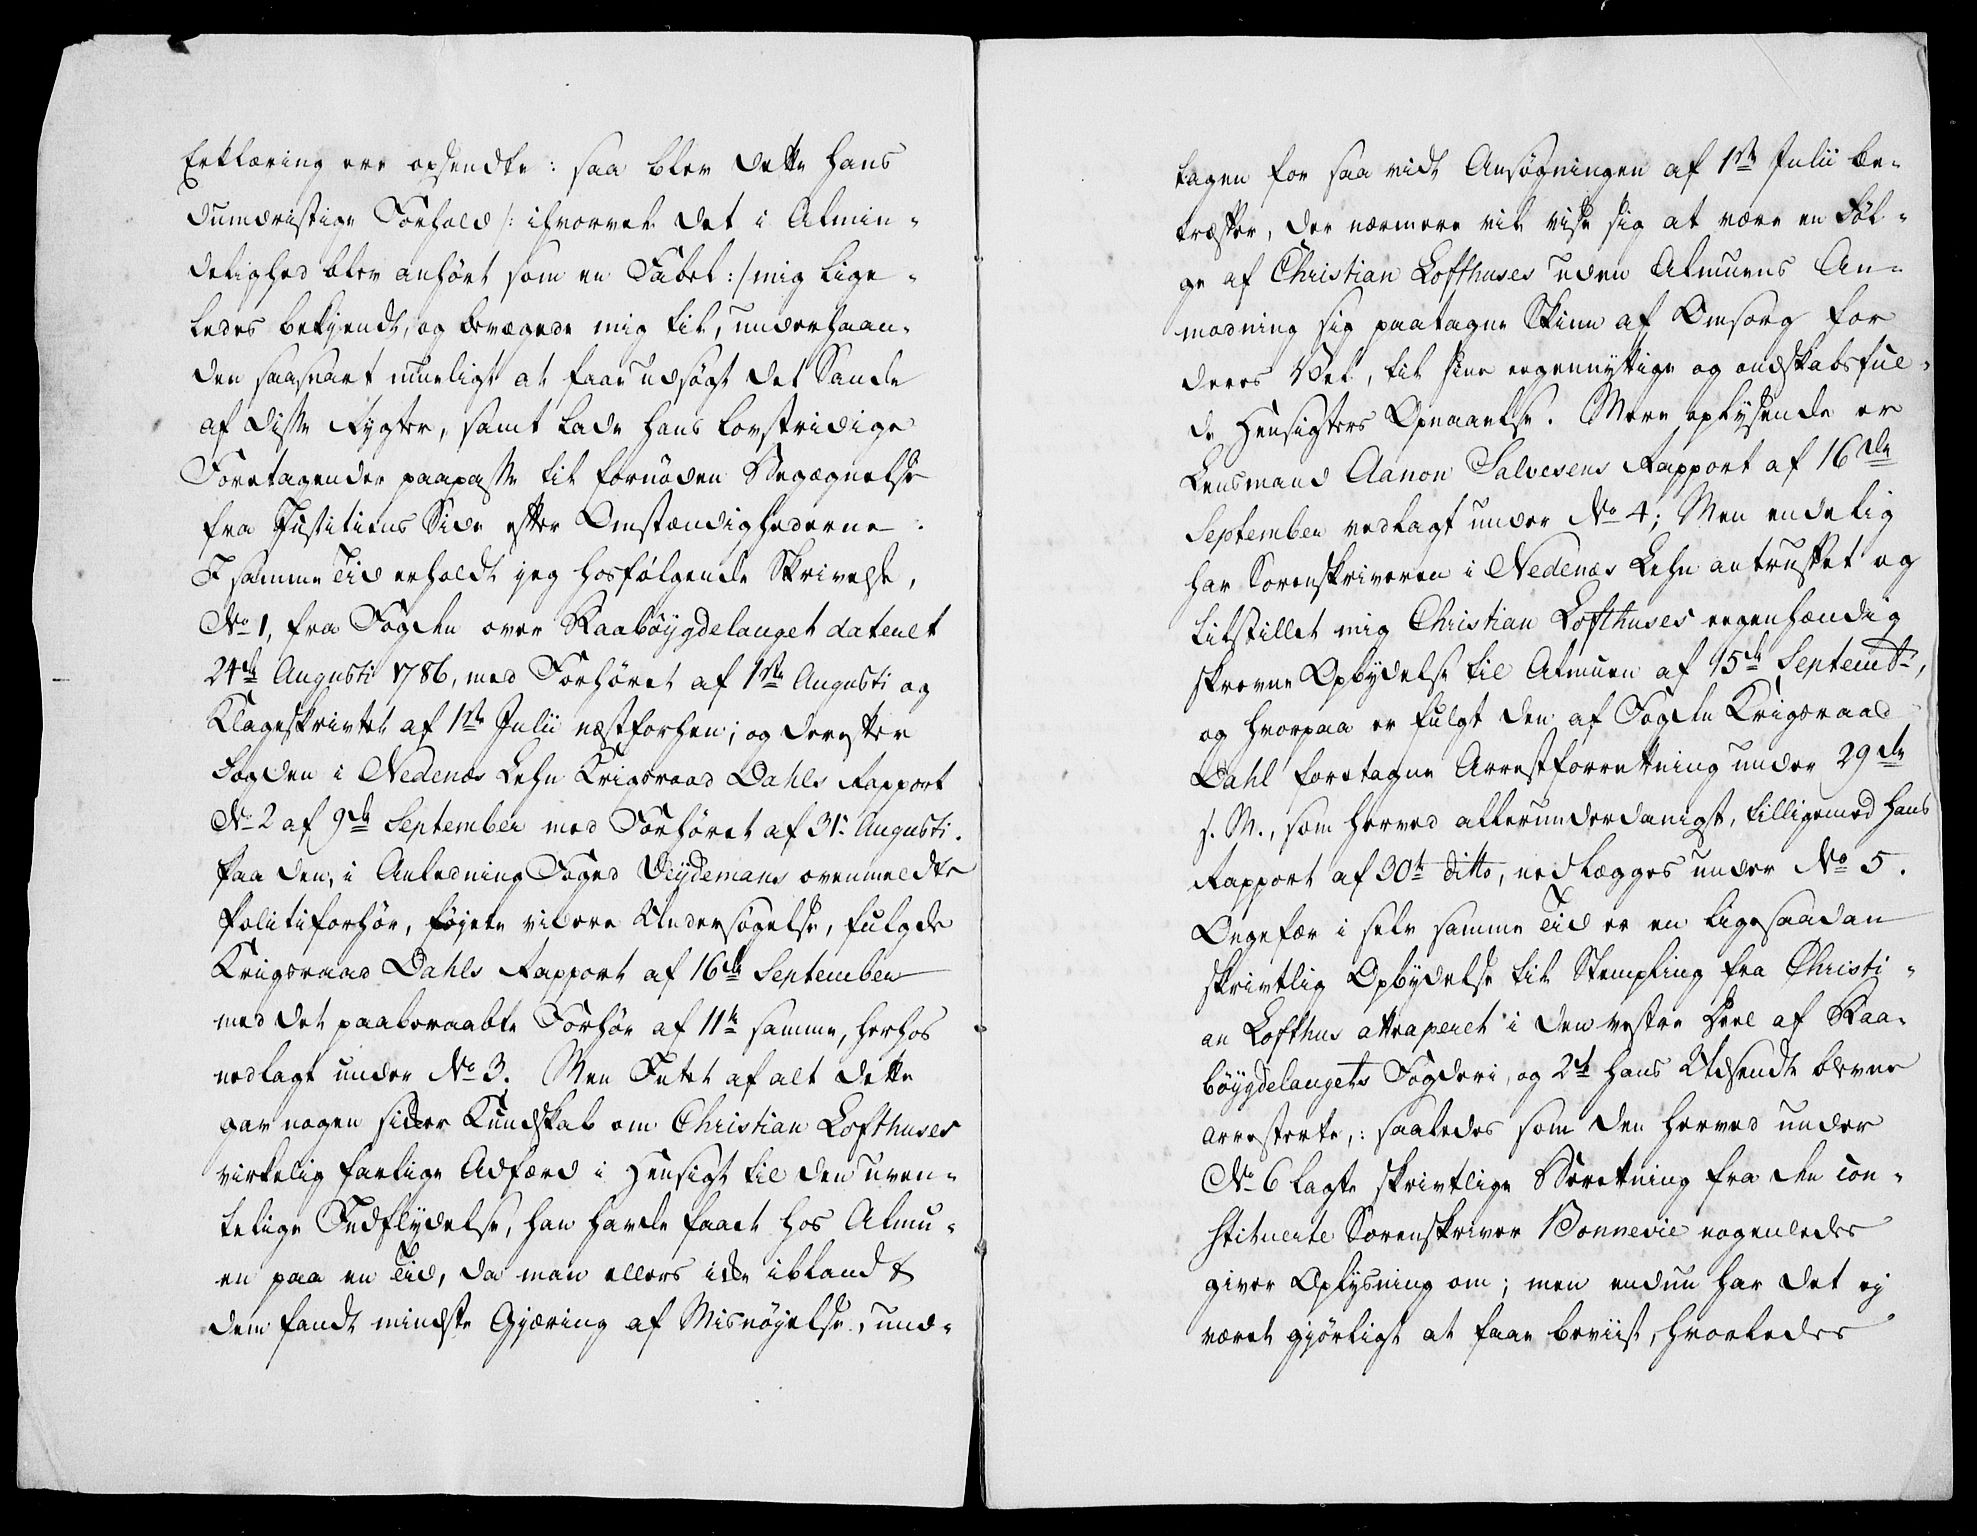 Erklæring ere opsendte: saa blev dette hans
dumdristige Forhold /: ihvorvel det i Almin-
delighed blev anhört som en Fabel :/ mig lige-
ledes bekjendt, og bevægede mig til, underhaan-
den saasnart mueligt at faae udsögt det Sande
af disse Rygter, samt lade hans lovstridige
Foretagender paapasse til fornöden Begægnelse
fra Justitiens Side efter Omstændighederne.
I samme Tid erholdt jeg hosfölgende Skrivelse,
No 1, fra Fogden over Raaböygdelauget dateret
24de Augusti 1786, med Forhöret af 1ste Augusti og
Klageskrivtet af 1ste Julii næstforhen; og derefter
Fogden i Nedenæs Lehn Krigsraad Dahls Rapport
No 2 af 9de September med Forhöret af 31. Augusti.
Paa den, i Anledning Foged Weydemans ovenmeldte
Politiforhör, föjete videre Undersögelse, fulgde
Krigsraad Dahls Rapport af 16de September
med det paaberaabte Forhör af 11te samme, herhos
nedlagt under No 3. Men Intet af alt dette
gav nogen sikker Kundskab om Christian Lofthuses
virkelig farlige Adfærd i Hensigt til den uven-
telige Indflydelse, han havde faaet hos Almu-
en paa en Tid, da man ellers ikke iblandt
dem fandt mindste Gjæring af Misnöjelse, und-
tagen for saa vidt Ansögningen af 1ste Julii be-
træffer, der nærmere vil vise sig at være en Föl-
ge af Christian Lofthuses uden Almuens An-
modning sig paatagne Skin af Omsorg for
deres Vel, til sine egennyttige og ondskabsful-
de Hensigters Opnaaelse. Mere oplysende er
Lensmand Aanon Salvesens Rapport af 16de
September vedlagt under No 4; Men endelig
har Sorenskriveren i Nedenæs Lehn antruffet og
tilstillet mig Christian Lofthuses egenhændig
skrevne Opbydelse til Almuen af 15de Septembr,
og hvorpaa er fulgt den af Fogden Krigsraad
Dahl foretagne Arrestforretning under 29de
s. M., som herved allerunderdanigst, tilligemed hans
Rapport af 30te ditto, nedlægges under No 5.
Ongefær i selv samme Tid er en ligesaadan
skrivtlig Opbydelse til Stempling fra Christi-
an Lofthus attraperet i den vestre Deel af Raa-
böygdelaugets Fogderi, og 2de hans Udsendte bleve
arresterte,: saaledes som den herved under
No 6 lagte skrivtlige Beretning fra den con-
stituerte Sorenskriver Bonnevie nogenledes
giver Oplysning om; men endnu har det ej
været gjörligt at faae beviist, hvorledes